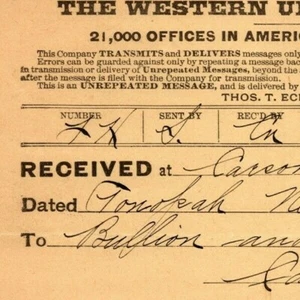 THE WESTERN U
21,000 OFFICES IN AMERI
This Company TRANSMITS and DELIVERS messages only
Errors can be guarded against only by repeating a message back
in transmission or delivery of Unrepeated Messages, beyond the
after the message is filed with the Company for transmission.
This is an UNREPEATED MESSAGE, and is delivered by
THOS. T. EC
NUMBER SENT BY REC'D BY
RECEIVED at Carson
Dated Tonopah N
To Bullion and
Ca